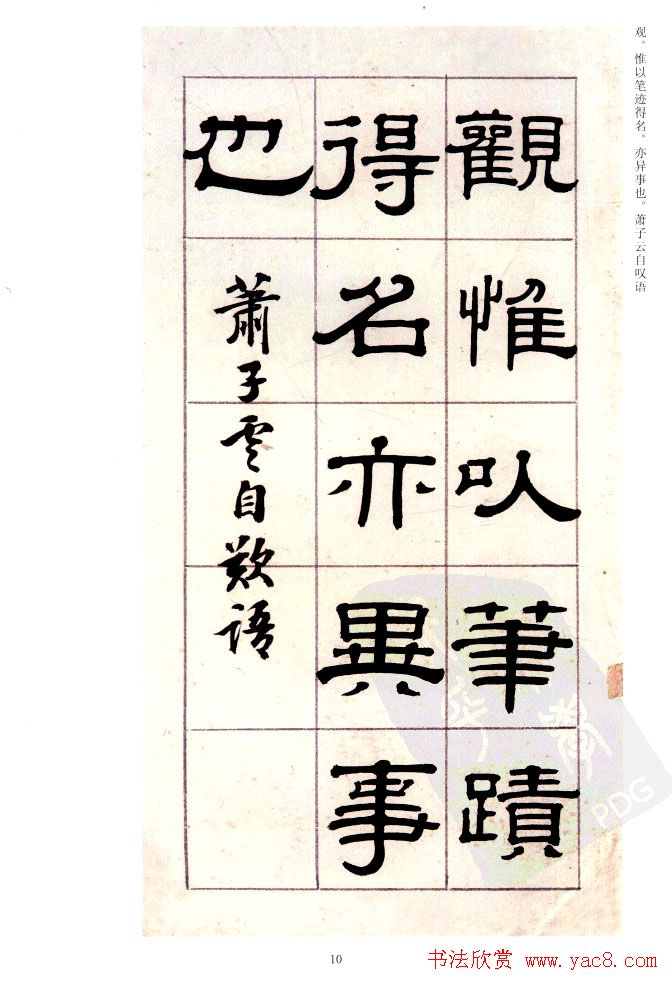 觀惟以筆蹟
得名亦異事
也
蕭子雲自歎語
观。惟以笔迹得名。亦异事也。萧子云自叹语
10
书法欣赏 www.yac8.com
PDG